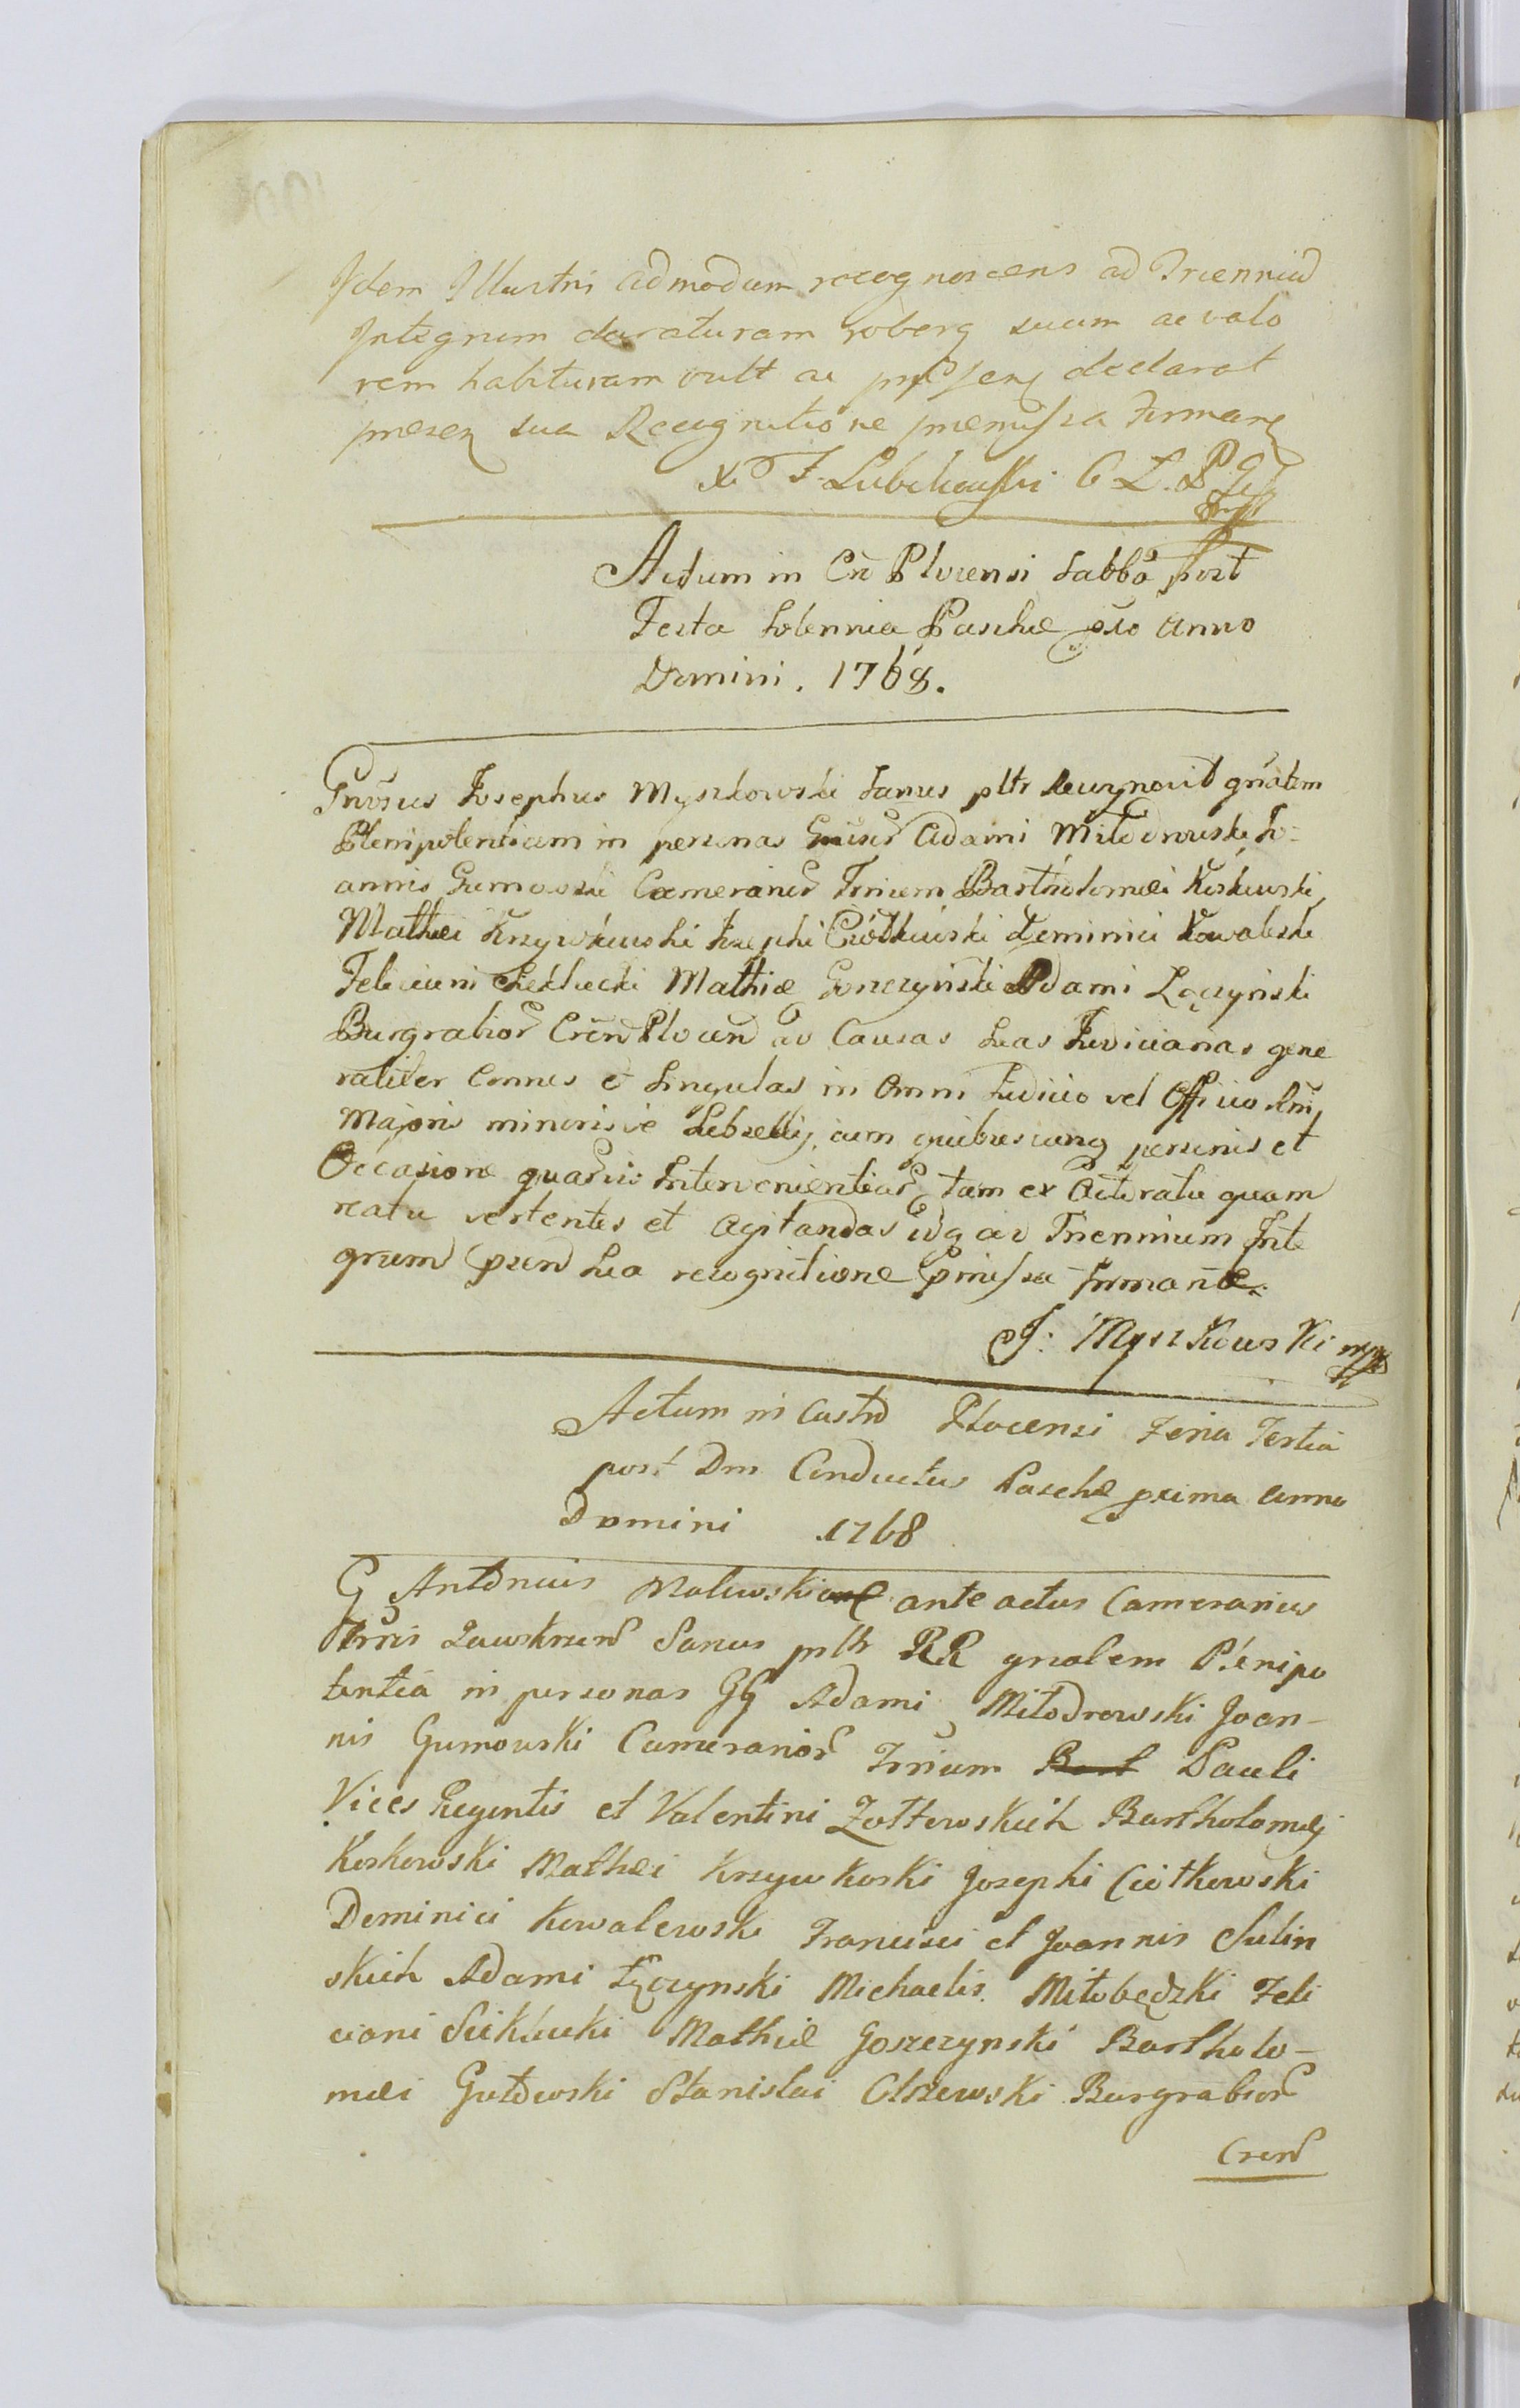 Idem Illustris admodum recognoscens ad Trienniū
Integrum duraturam robarq suum ac valo
rem habituram vult ac declarat
presen sua Recognitione premissa Firmane
X. F. Lubchowski C L. P.
Actum in Crō Plocensi Sabbō post
Festa Solennia Paschæ pxio Anno
Domini. 1768.
Gnōsus Josephus Myszkowski Sanus pltr Recognovit gñalem
Plenipotentiam in personas Gnōsor Adami Miłodrowski Jo-
annis Gumowski Cameranior Trrium Bartholomæi Koskowski
Mathei Krzywkowski Josephi Ciołkowski Dominici Kowalewski
Feliciani Sieklucki Mathiæ Goszczyński Adami Łączyński
Burgrabior Crēn Plocen ad Causas suas Judiciarias gene
raliter Omnes et Singulas in Omni Judicio vel Officio Rni,
Majoris minorisve Subselly, cum quibuscunq personis et
Occasione quarvis Intervenientiar, tam ex Actoratu quam
reatu vertentes et Agitandas idq ad Triennium Inte
grum pxen sua recognitione pmissa firmanæ.
J: Myszkowski mp
Actum in Castro Plocensi Feria Tertia
post Dm Conductus Paschæ prima Anno
Domini 1768
G Antonius Malewski ante actus Cameranius
Trris Zawskren Sanus pltr RR gnalem Plenipo
tentiā in personas GG Adami Miłodrowski Joan-
nis Gumowski Cameranior Trrium Bart Pauli
Vices Regentis et Valentini Żołtowskich Bartholomæj
Koskowski Mathei Krzywkoski Josephi Ciołkowski
Dominici Kowalewski Francisci et Joannis Sulin
skich Adami Łączynski Michaelis Miłobędzki Feli
ciani Siekłucki Mathiæ Goszczynski Bartholo-
mæi Gutowski Stanislai Olszewski Burgrabior
Cren